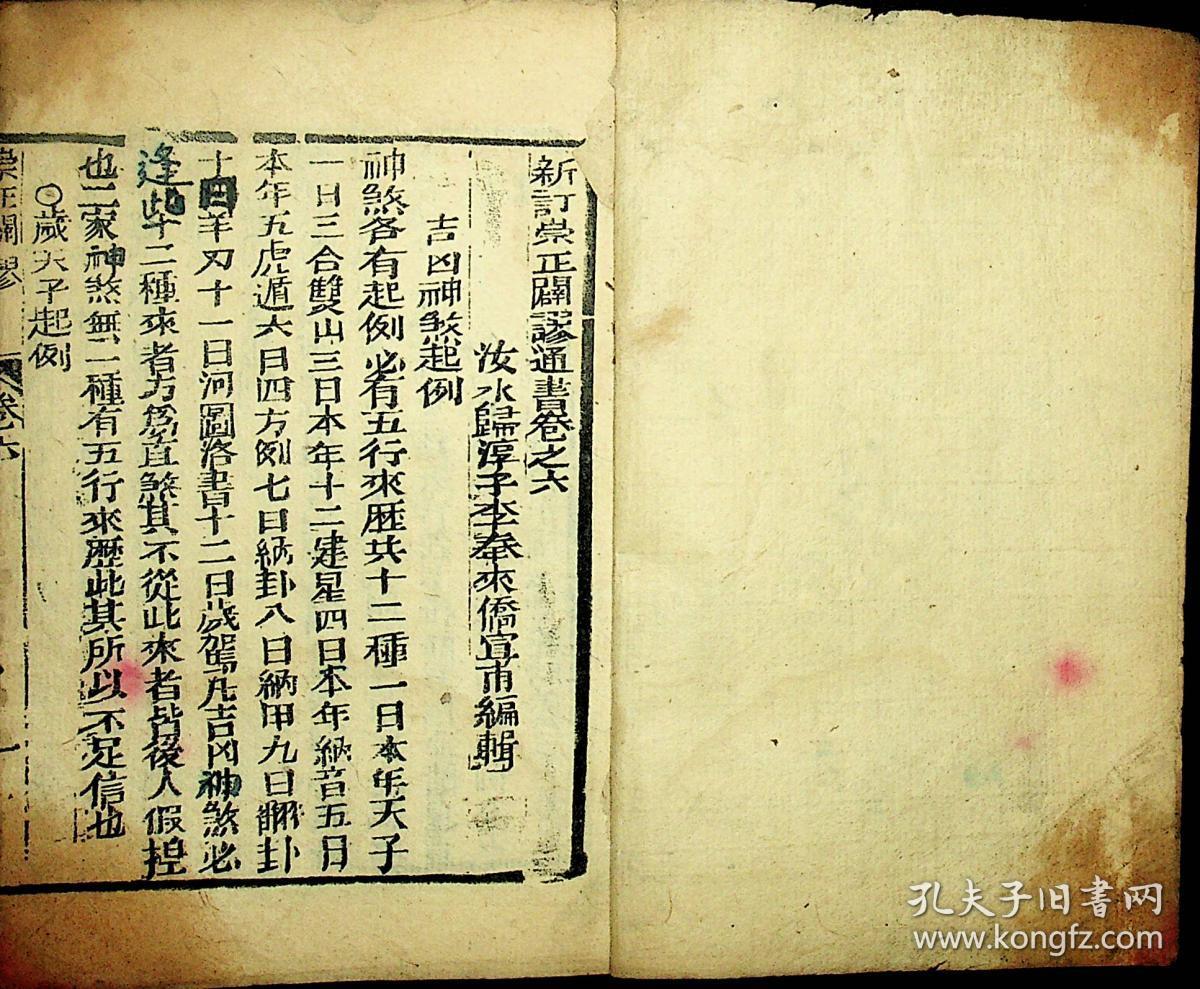 新訂崇正闢謬通書卷之六
汝水歸淳子李奉來僑宜甫編輯
吉凶神煞起例
神煞各有起例必有五行來歷共十二種一曰本年天子
一曰三合雙山三曰本年十二建星四曰本年納音五曰
本年五虎遁六曰四方例七曰納卦八曰納甲九曰翻卦
十曰羊刃十一曰河圖洛書十二曰歲駕凡吉凶神煞必
逢此十二種來者方爲眞煞其不從此來者皆後人假捏
也二家神煞無二種有五行來歷此其所以不足信也
○歲天子起例
崇正闢謬 卷六 一
孔夫子旧书网
www.kongfz.com